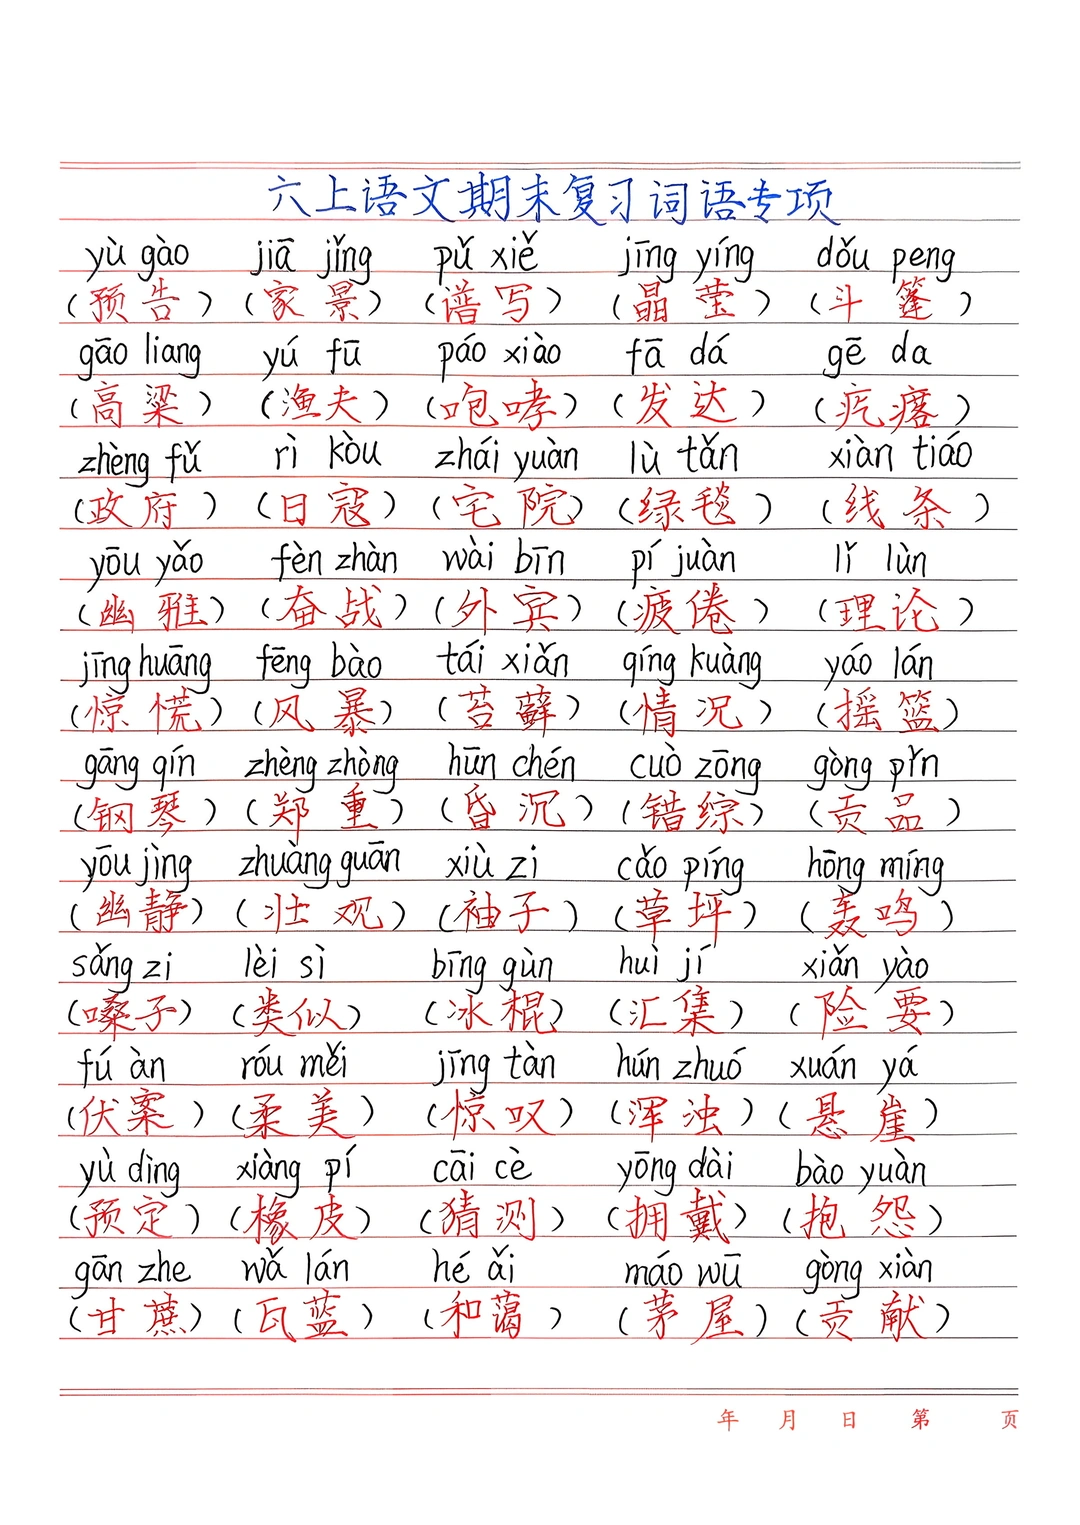 六上语文期末复习词语专项
yù gào jiā jǐng pǔ xiě jīng yíng dǒu peng
(预告) (家景) (谱写) (晶莹) (斗篷)
gāo liang yú fū páo xiào fā dá gē da
(高粱) (渔夫) (咆哮) (发达) (疙瘩)
zhèng fǔ rì kòu zhái yuàn lù tǎn xiàn tiáo
(政府) (日寇) (宅院) (绿毯) (线条)
yōu yǎo fèn zhàn wài bīn pí juàn lǐ lùn
(幽雅) (奋战) (外宾) (疲倦) (理论)
jīng huāng fēng bào tái xiǎn qíng kuàng yáo lán
(惊慌) (风暴) (苔藓) (情况) (摇篮)
gāng qín zhèng zhòng hūn chén cuò zōng gòng pǐn
(钢琴) (郑重) (昏沉) (错综) (贡品)
yōu jìng zhuàng guān xiù zi cǎo píng hōng míng
(幽静) (壮观) (袖子) (草坪) (轰鸣)
sǎng zi lèi sì bīng gùn huì jí xiǎn yào
(嗓子) (类似) (冰棍) (汇集) (险要)
fú àn róu měi jīng tàn hún zhuó xuán yá
(伏案) (柔美) (惊叹) (浑浊) (悬崖)
yù dìng xiàng pí cāi cè yōng dài bào yuàn
(预定) (橡皮) (猜测) (拥戴) (抱怨)
gān zhe wǎ lán hé ǎi máo wū gòng xiàn
(甘蔗) (瓦蓝) (和蔼) (茅屋) (贡献)
年 月 日 第 页